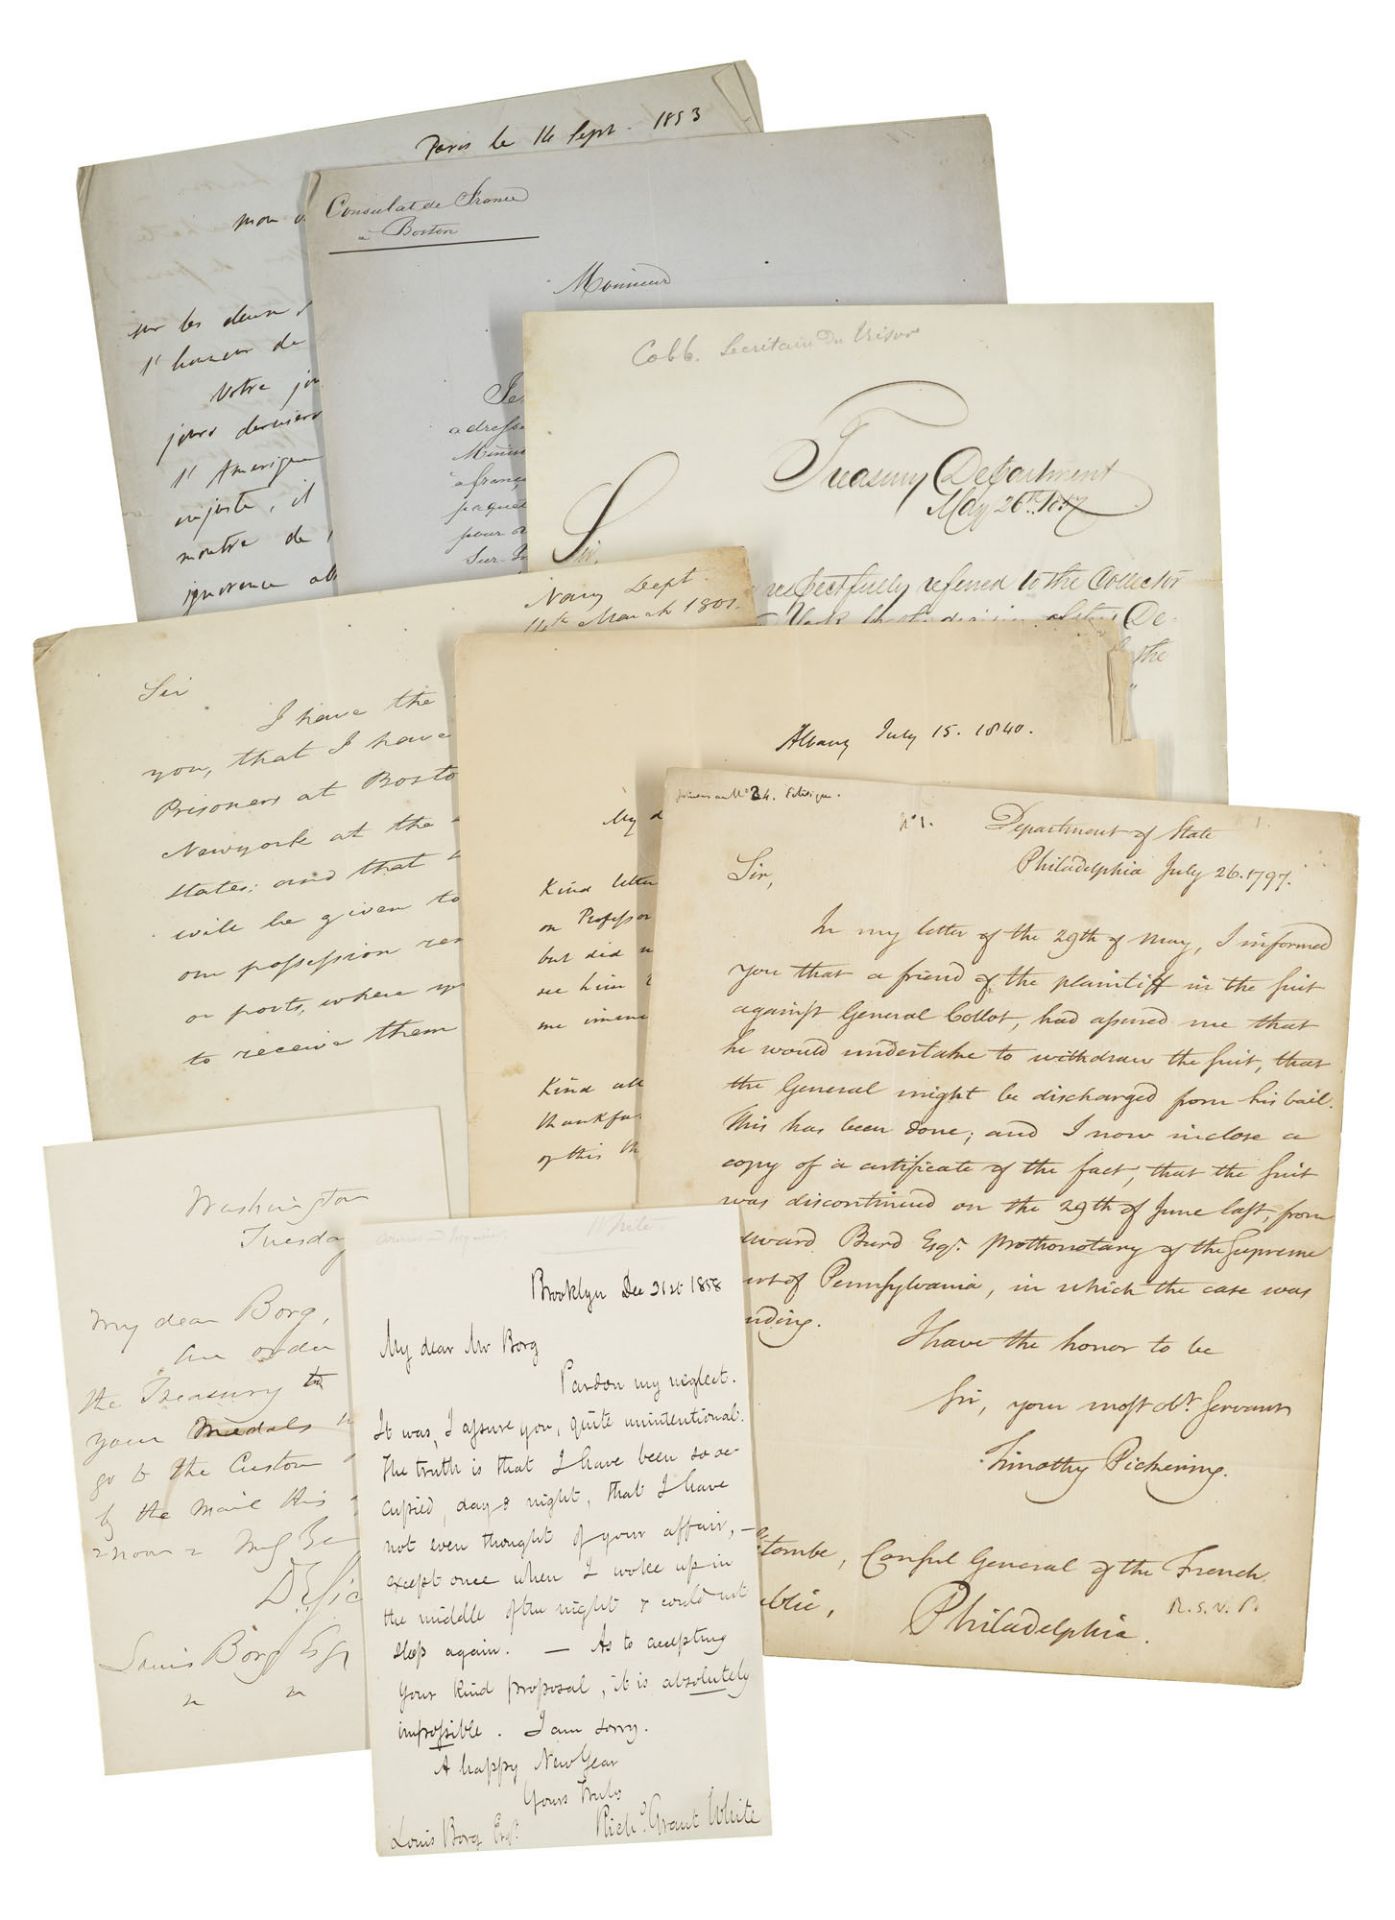 Paris le 14 Sept. 1853
mon
sur les deux
l'honneur de
Votre
jours derniers
l'Amérique
injuste, il
montre de
ignorence
Consulat de France
à Boston
Monsieur
Je
adresse
à françai
paquet
pour
Sur
Cobb. Secritair Du Trisor
Treasury Department
May 26th. 1857
Sir,
respectfully referred to the Collector
York for the decision of this De-
the
Navy Dept.
14th March 1801.
Sir
I have the
you, that I have
Prisoners at Bosto
Newyork at the
States: and that
will be given to
our possession
or ports, where
to receive them
Albany July 15. 1840.
My d
Kind letter
on Professor
but did n
see him
me
Kind
thankfu
of this th
N° 1.
Department of State
Philadelphia July 26. 1797.
Sir,
In my letter of the 29th of May, I informed
you that a friend of the plaintiff in the suit
against General Collot, had assured me that
he would undertake to withdraw the suit, that
the General might be discharged from his bail.
This has been done; and I now inclose a
copy of a certificate of the fact, that the suit
was discontinued on the 29th of June last, from
ward Burd Esqr. prothonotary of the Supreme
urt of Pennsylvania, in which the case was
nding.
I have the honor to be
Sir, your most obt. servant
Timothy Pickering.
tombe, Consul General of the French
ublic,
Philadelphia.
R. S. V. P.
Washington
Tuesda
My dear Borg,
An order
the Treasury to
your Medals
go to the Custom
by the mail this
Louis Borg Esq
White
Brooklyn Dec 21st 1858
My dear Mr Borg
Pardon my neglect.
It was, I assure you, quite unintentional.
The truth is that I have been so oc-
cupied, day & night, that I have
not even thought of your affair, –
except once when I woke up in
the middle of the night & could not
sleep again. — As to accepting
your kind proposal, it is absolutely
impossible. I am sorry.
A happy New Year
Yours Truly
Richd. Grant White
Louis Borg Esqr.